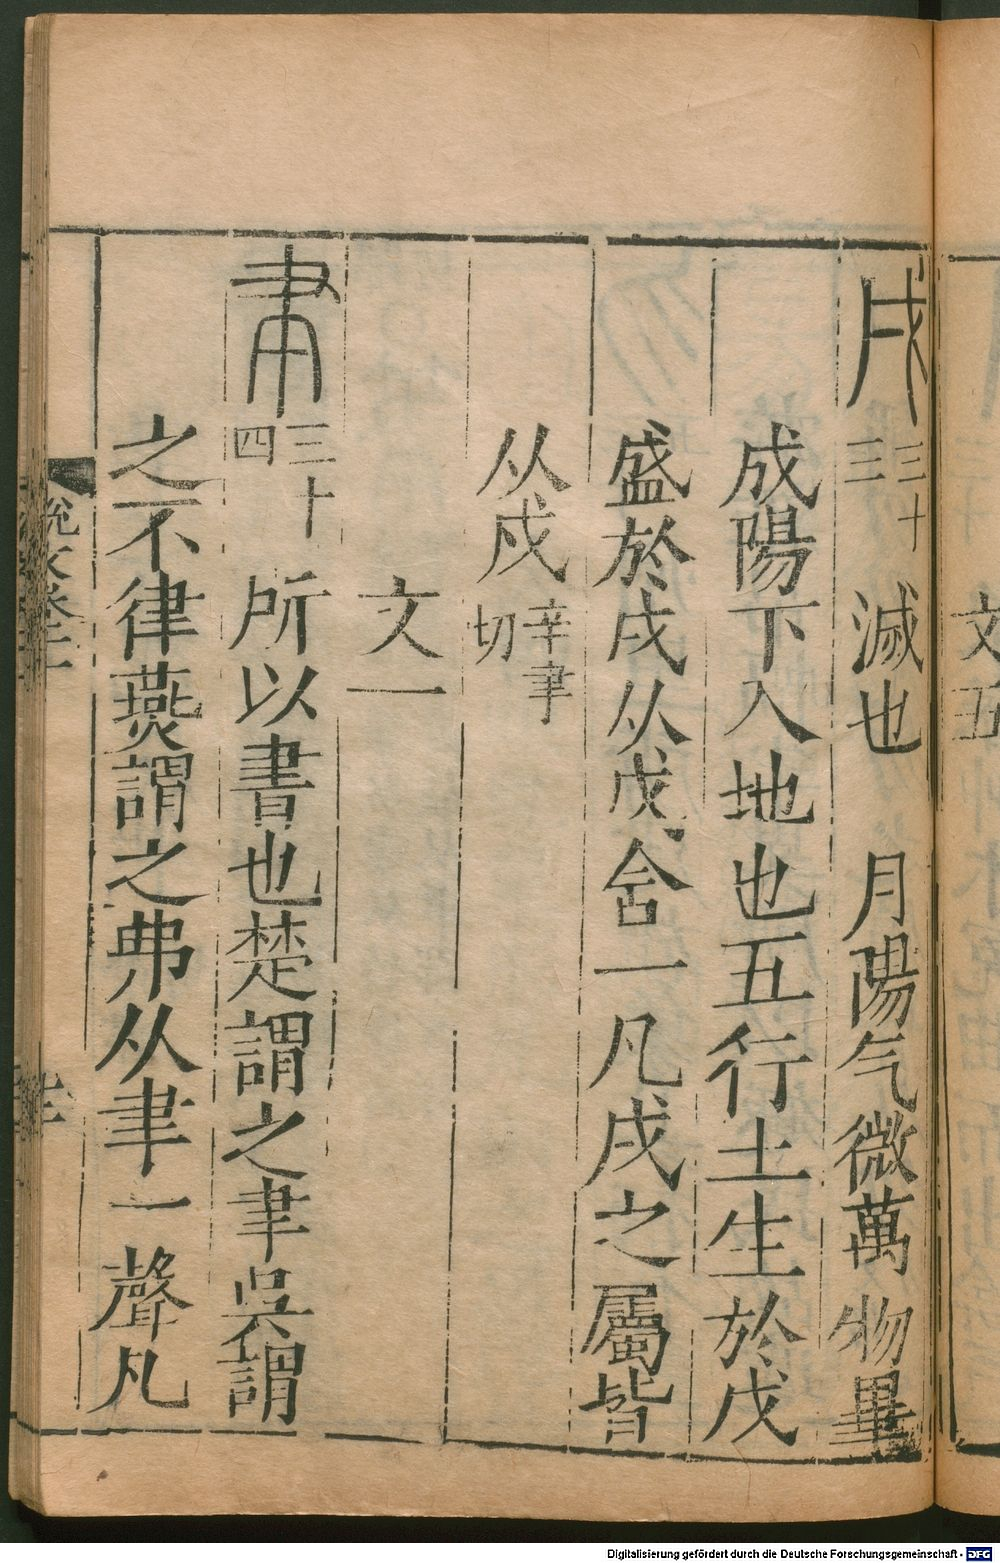 文五
戌 三十三 滅也 月陽气微萬物畢
成陽下入地也五行土生於戊
盛於戌从戊含一凡戌之屬皆
从戌 辛聿切
文一
聿 三十四 所以書也楚謂之聿吳謂
之不律燕謂之弗从聿一聲凡
說文卷
Digitalisierung gefördert durch die Deutsche Forschungsgemeinschaft - DFG